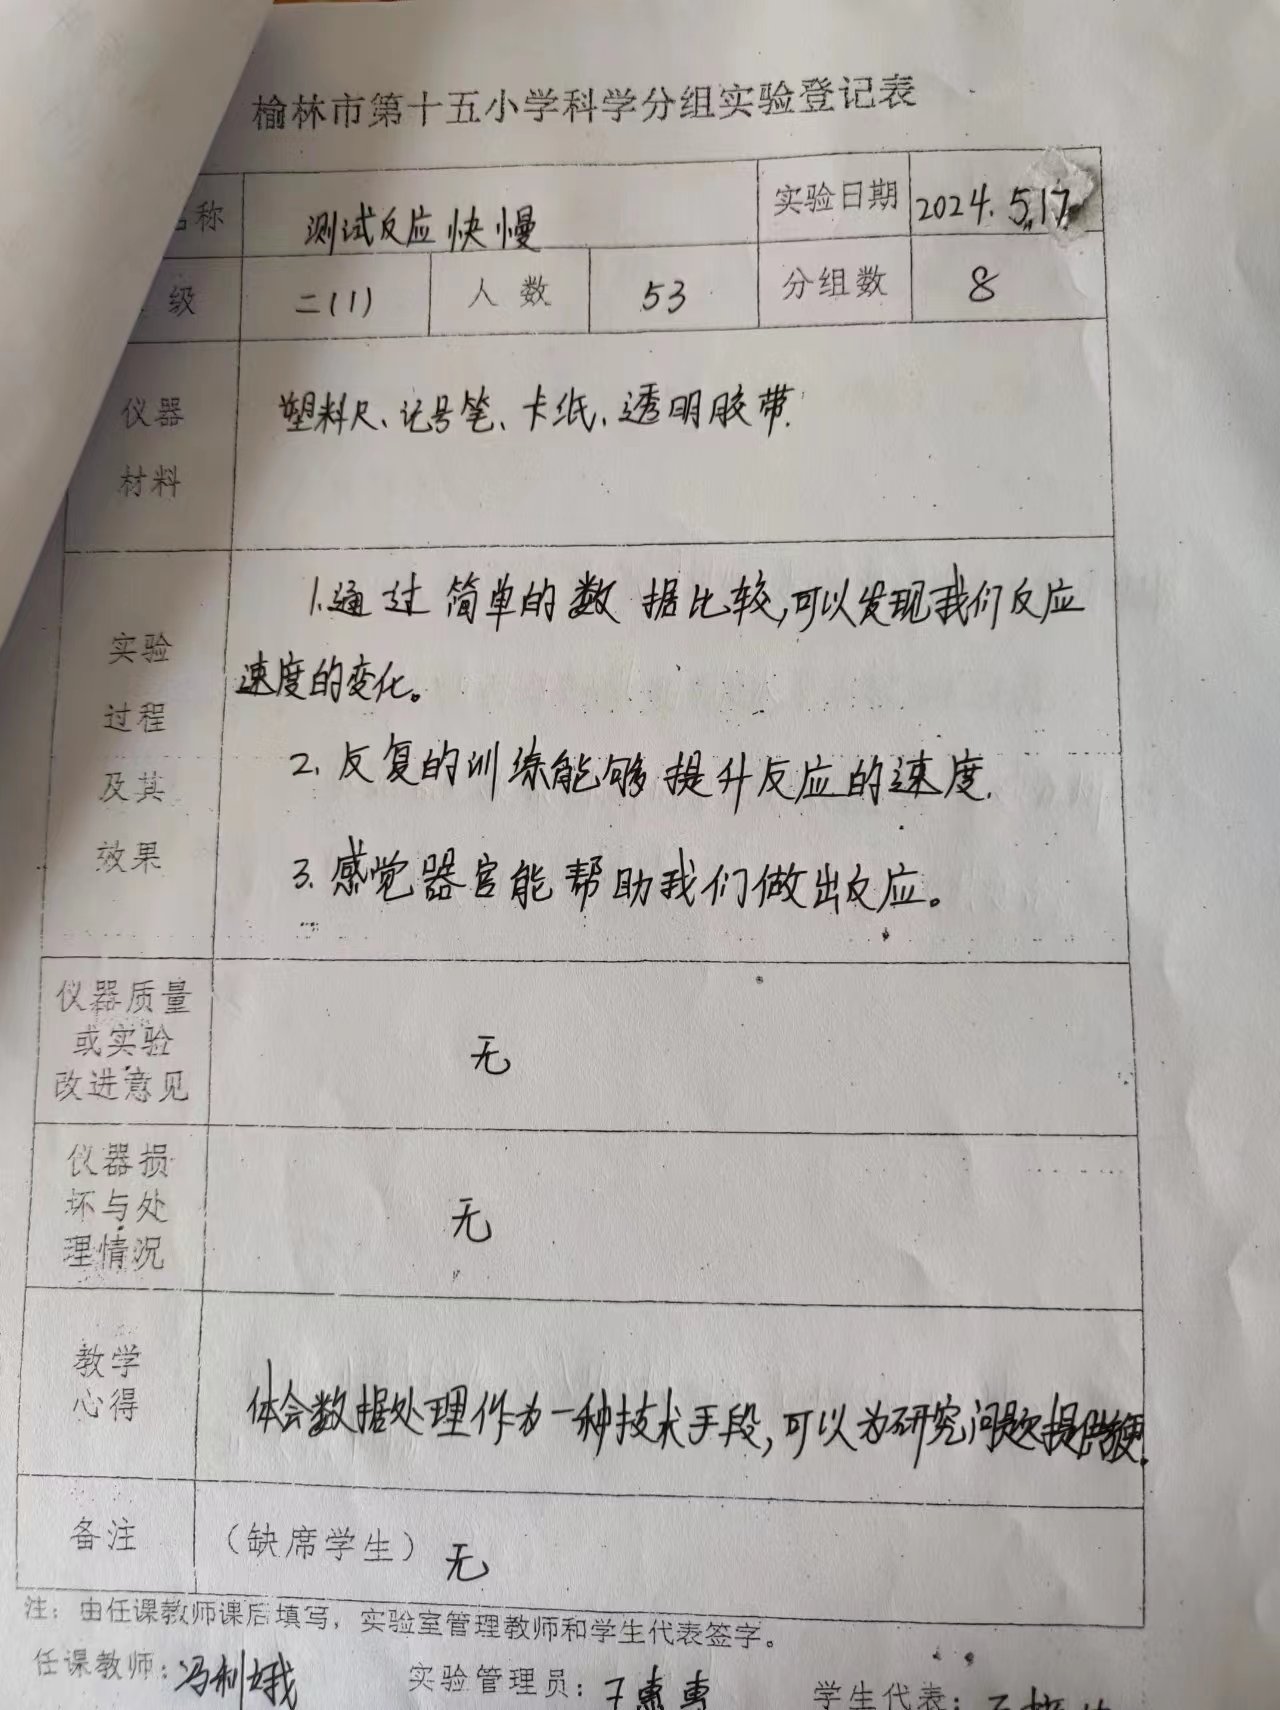 榆林市第十五小学科学分组实验登记表
称 测试反应快慢 实验日期 2024.5.17
级 二(1) 人数 53 分组数 8
仪器
材料
塑料尺、记号笔、卡纸、透明胶带.
实验
过程
及其
效果
1.通过简单的数据比较,可以发现我们反应
速度的变化。
2.反复的训练能够提升反应的速度.
3.感觉器官能帮助我们做出反应。
仪器质量
或实验
改进意见
无
仪器损
坏与处
理情况
无
教学
心得
体会数据处理作为一种技术手段,可以为研究问题提供
备注 (缺席学生) 无
注：由任课教师课后填写，实验室管理教师和学生代表签字。
任课教师：冯利娥 实验管理员： 学生代表：